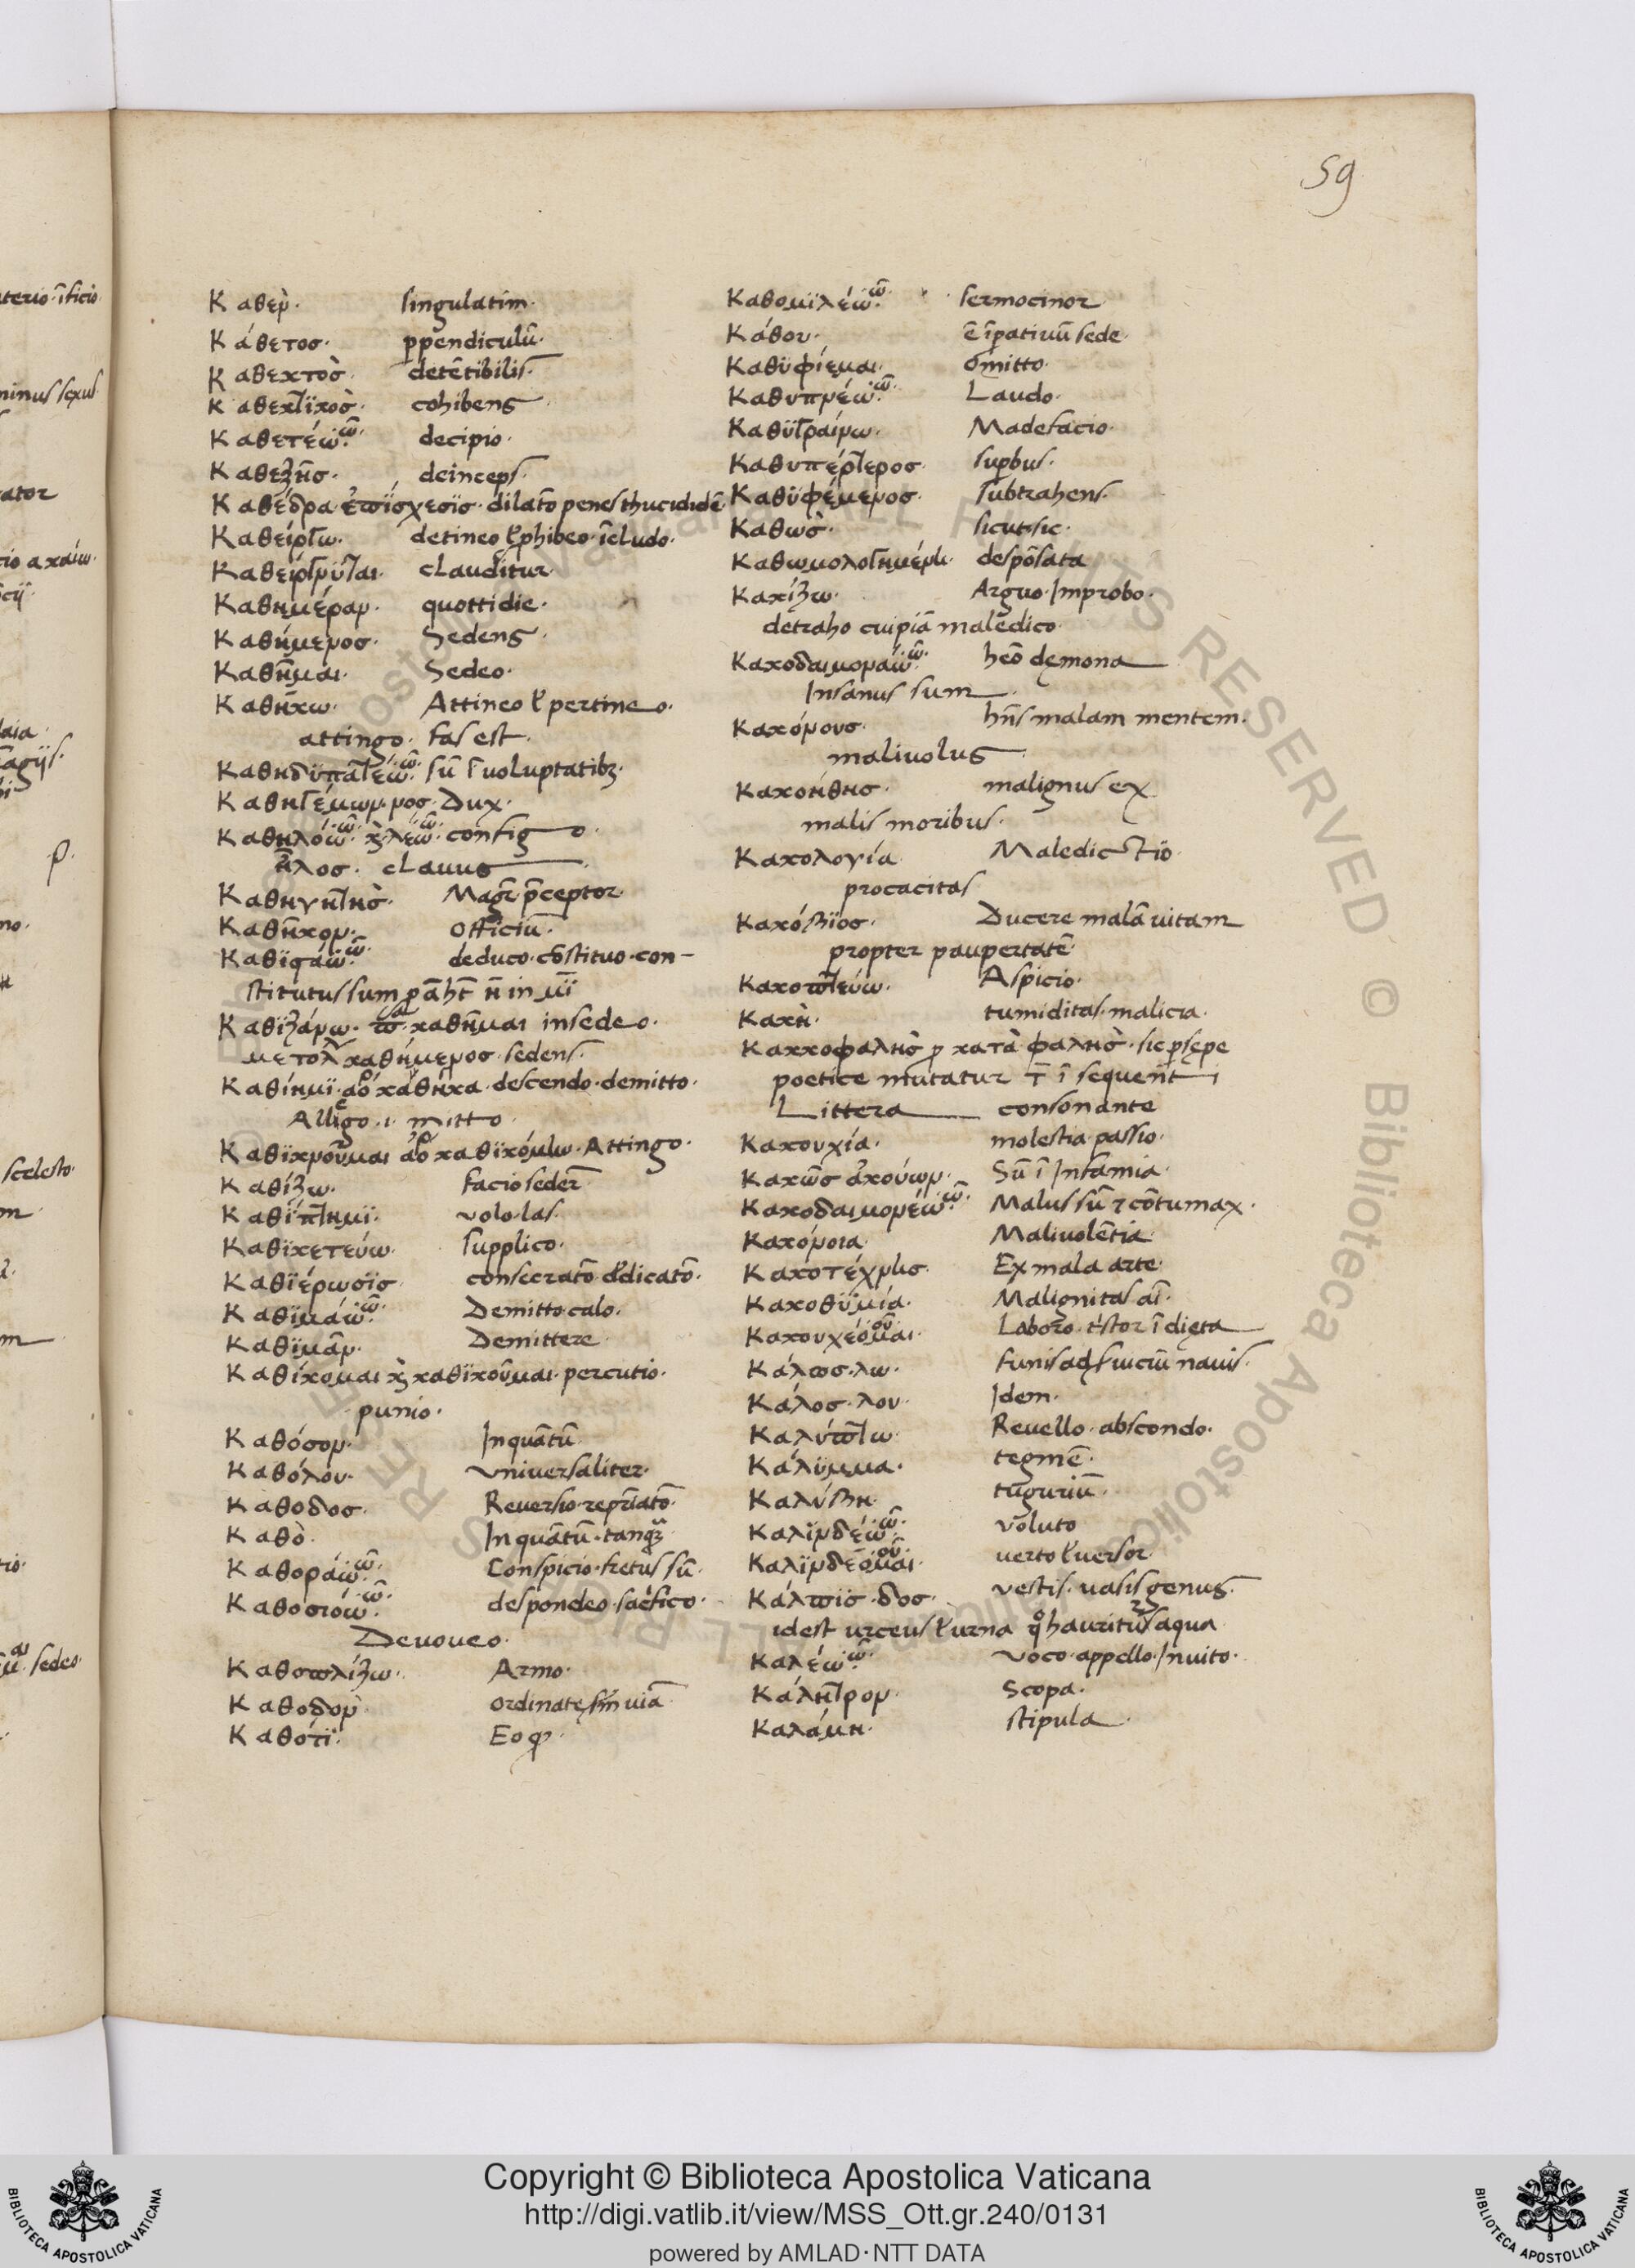 59
Καθεν̀· singulatim·
Κάθετος· ꝑpendiculū·
Καθεκτὸς· detētibilis·
Καθεκτϊκὸς· cohibens·
Καθετέω ῶ· decipio·
Καθεξῆς· deinceps·
Καθέδρα ἐπΐσχεσϊς· dilatō penes thucididē
Καθείργω· detineo ł ꝓhibeo· īcludo·
Καθείργνϋται· clauditur·
Καθημέραν· quottidie·
Καθήμενος· Sedens·
Καθῆμαι· Sedeo·
Καθήκω· Attineo ł pertineo·
attingo· fas est·
Καθηδϋπαθέω ῶ· sū ī uoluptatibꝫ·
Καθηγέμων· νος· Dux·
Καθηλόω ῶ· κ̀ λέω ῶ· configo·
ἧλος· clauus
Καθηγητὴς· Magr̄· p̄ceptor·
Καθῆκον· officiū·
Καθϊστάω ῶ· deduco· cōstituo· con-
stitutus sum
Καθϊζάνω· καθῆμαι insedeo·
καθήμενος· sedens·
Καθίημϊ· καθῆκα· descendo· demitto·
Alligo· i· mitto·
Καθϊκνοῦμαι καθϊκόμην· Attingo·
Καθίζω· facio seder̄
Καθίπτημϊ· volo· las·
Καθϊκετεύω· supplico·
Καθϊέρωσϊς· consecratō· dedicatō·
Καθϊμάω ῶ· Demitto· calo·
Καθϊμᾶν· Demittere
Καθίκομαι κ̀ καθϊκοῦμαι· percutio·
punio·
Καθόσον· Inquātū
Καθόλου· vniuersaliter·
Κάθοδος· Reuersio·
Καθὸ· Inquātū· tanqꝫ·
Καθοράω ῶ· Conspicio· fretus sū·
Καθοσιόω ῶ· despondeo· sacrifico·
Deuoueo·
Καθοπλίζω· Armo·
Καθοδὸν· ordinate, uiā
Καθότϊ· Eo ꝙ·
Καθομϊλέω ῶ· sermocinor
Κάθου· ē īpatiuū sede·
Καθϋφίεμαι· omitto·
Καθυμνέω ῶ· Laudo·
Καθϋγραίνω· Madefacio·
Καθυπέρτερος· supbus·
Καθϋφέμενος· subtrahens·
Καθὼς· sicut· sic·
Καθωμολογημένη· despōsata
Κακίζω· Arguo· Improbo·
detraho cuipiā maledico·
Κακοδαιμονάω ῶ· heō dęmona
Insanus sum·
Κακόνους· hn̄s malam mentem·
maliuolus
Κακοήθης· malignus ex
malis moribus·
Κακολογία· Maledictiō
procacitas
Κακόβϊος· Ducere malā uitam
propter paupertatē·
Κακοπτεύω· Aspicio·
Κάκη· tumiditas· malicia·
Κακκοφαλῆς ꝑ κατὰ φαλῆς· sic ꝑsępe
poetice mutatur τ̄ ī sequent
Littera consonante
Κακουχία· molestia· passio·
Κακῶς ἀκούων· Sū ī Infamia·
Κακοδαιμονέω ῶ· Malus sū ⁊ cōtumax·
Κακόνοια· Maliuolētia·
Κακοτέχνης· Ex mala arte·
Κακοθϋμία· Malignitas aī·
Κακουχέομαι οῦ· Laboro· ī dięta
Κάλως· λω· funis nauis·
Κάλος· λου· Idem·
Καλύπτω· Reuello· abscondo·
Κάλϋμμα· tegmē·
Καλύβη· tuguriū·
Καλϊνδέω ῶ· voluto
Καλϊνδέομαι οῦ· uerto ł uersor
Κάλπϊς· δος· vestis· uasis genus·
idest urceus ł urna qͦ hauritur aqua
Καλέω ῶ· voco· appello· Inuito·
Κάλητρον· Scopa·
Καλάμη· stipula·
Copyright © Biblioteca Apostolica Vaticana
http://digi.vatlib.it/view/MSS_Ott.gr.240/0131
powered by AMLAD·NTT DATA
BIBLIOTECA APOSTOLICA VATICANA
BIBLIOTECA APOSTOLICA VATICANA